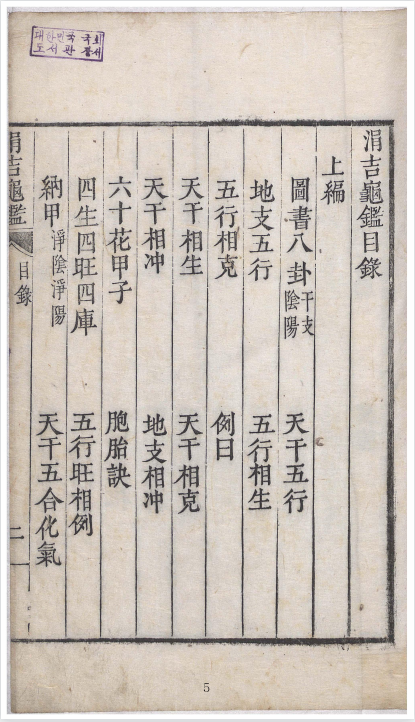 대한민국 국회
도서관 장서
涓吉龜鑑目錄
上編
圖書八卦 干支陰陽 天干五行
地支五行 五行相生
五行相克 例曰
天干相生 天干相克
天干相冲 地支相冲
六十花甲子 胞胎訣
四生四旺四庫 五行旺相例
納甲 淨陰淨陽 天干五合化氣
涓吉龜鑑 目錄 二
5